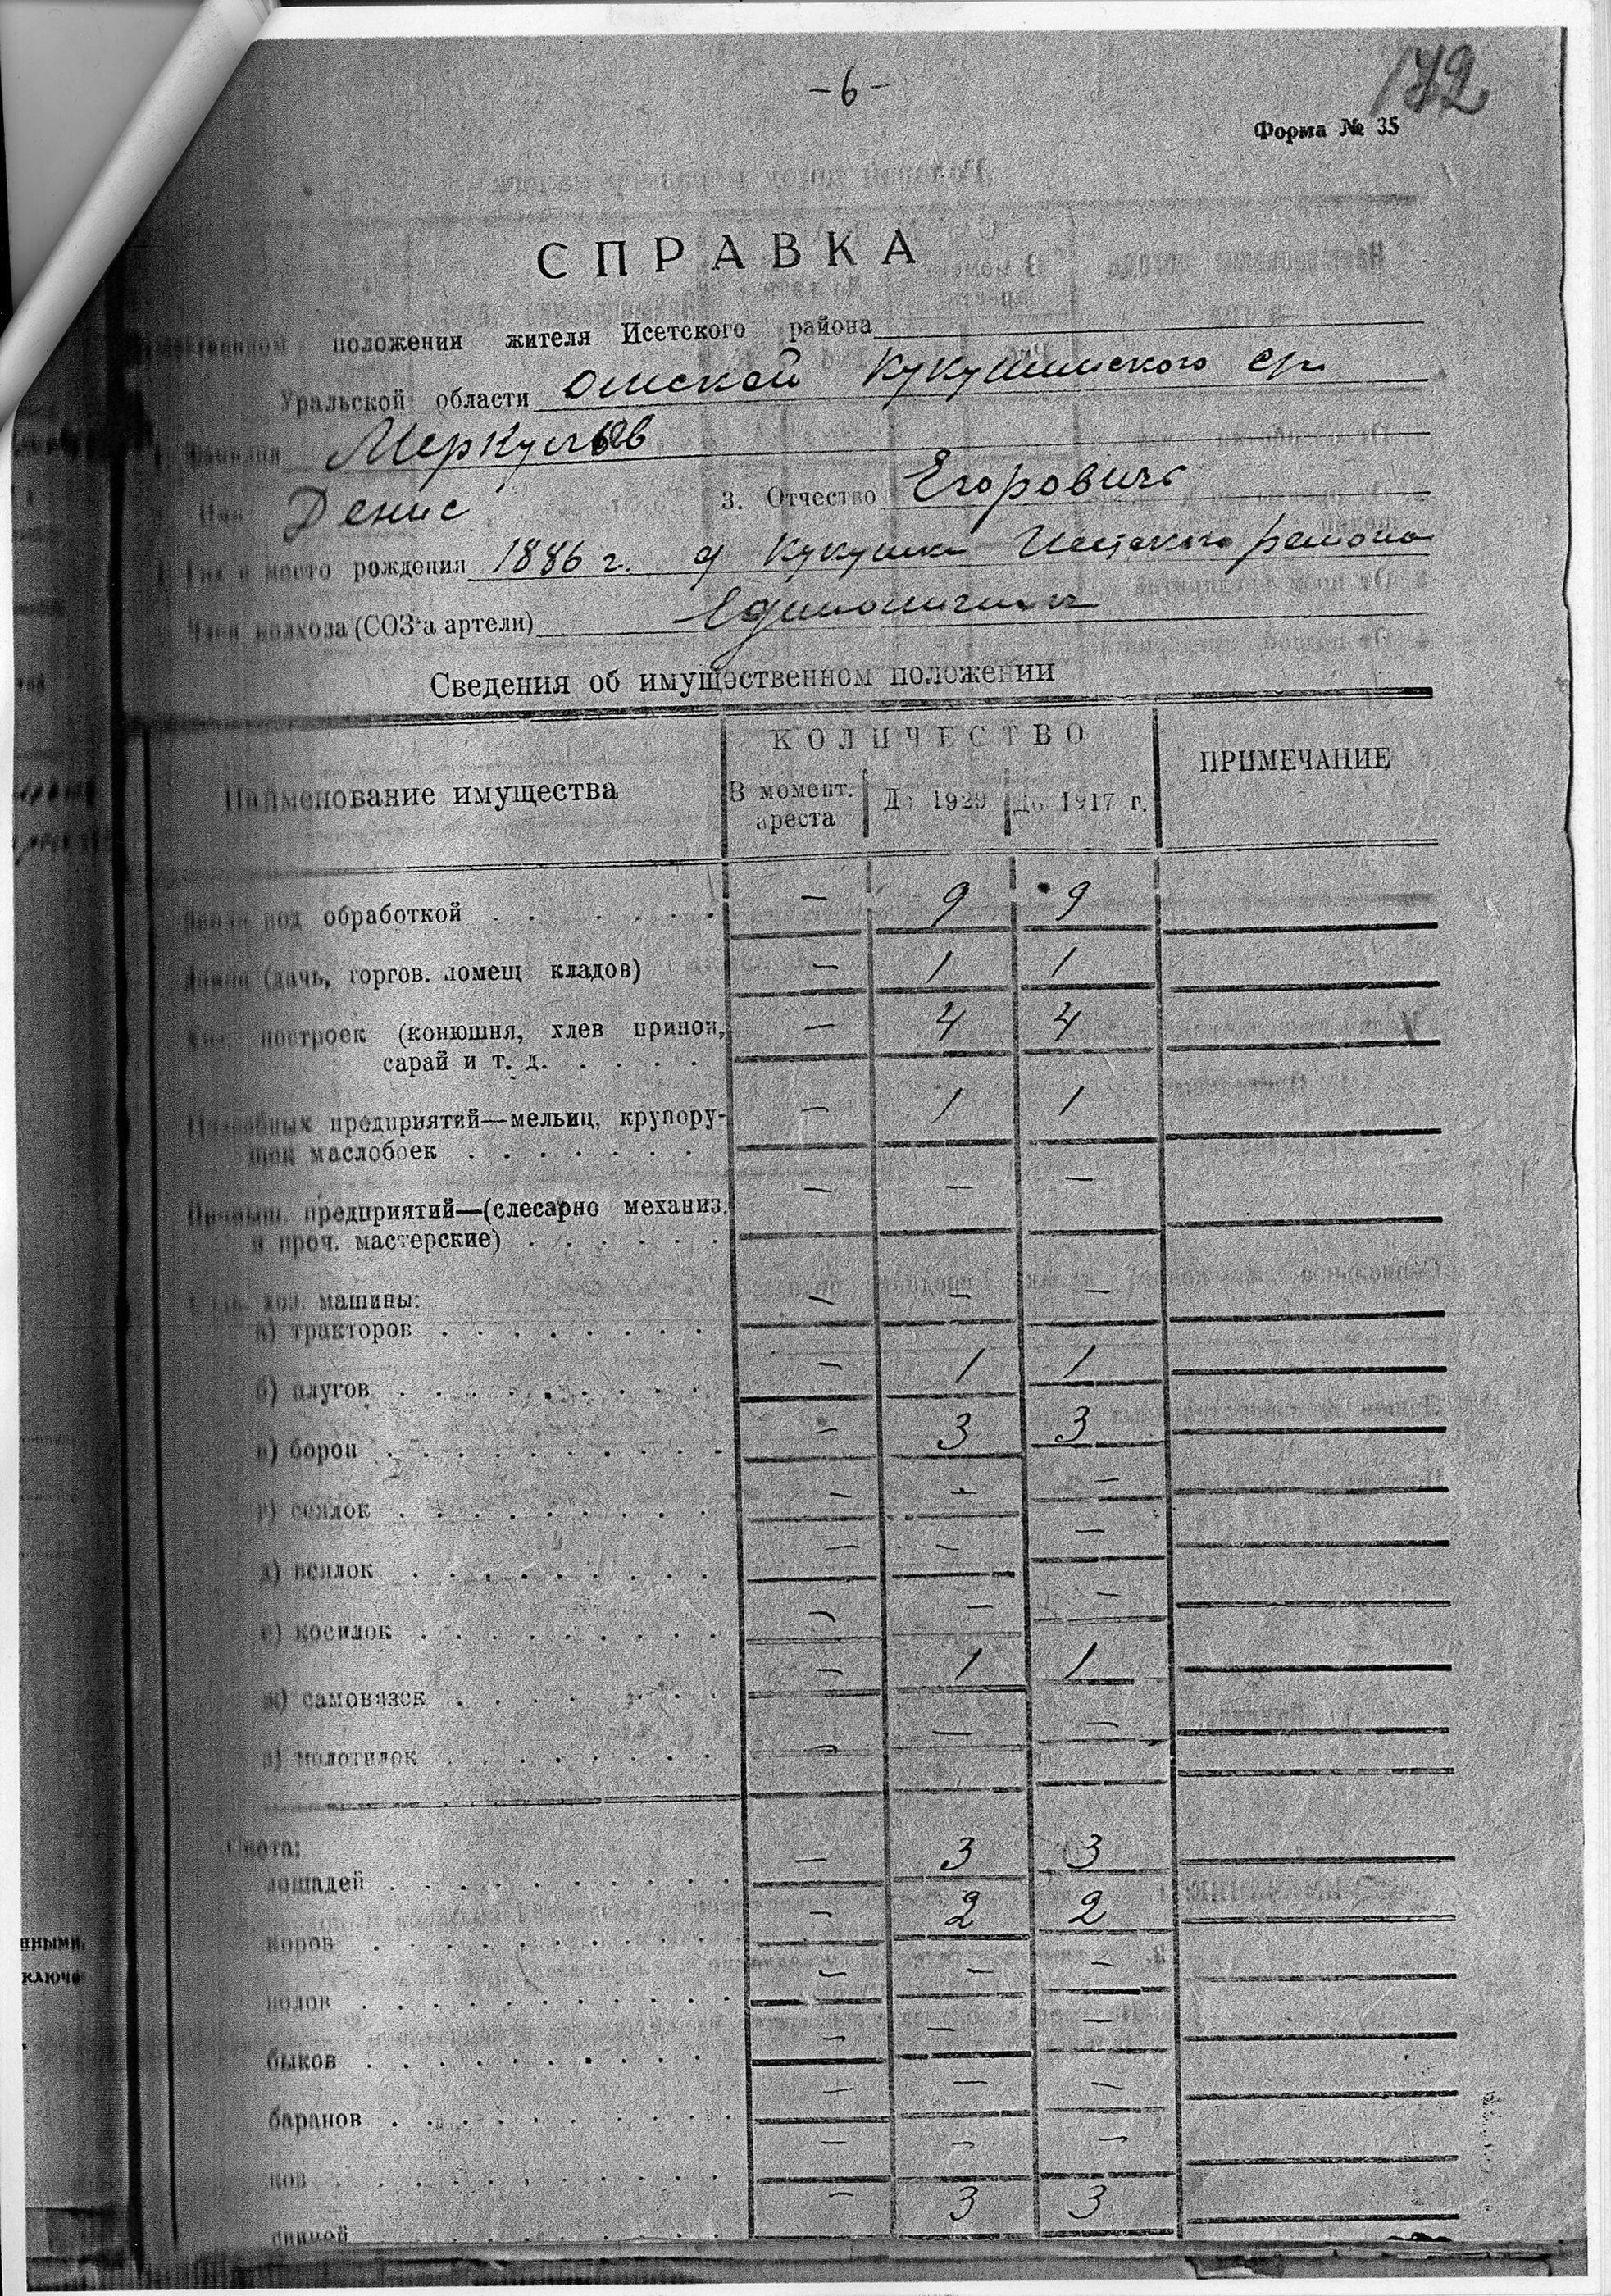 - 6 -
172
Форма № 35
СПРАВКА
положении жителя Исетского района
Уральской области Омской Кукушинского ср.
Фамилия Меркульев
Имя Денис 3. Отчество Егорович
Год и место рождения 1886 г. д Кукушки Исетского района
Член колхоза (СОЗ'а артели) Единоличник
Сведения об имущественном положении
Наименование имущества
КОЛИЧЕСТВО
ПРИМЕЧАНИЕ
В момент. ареста
До 1929
До 1917 г.
Земли под обработкой . . . . . . . — 9 9
Домов (дачь, торгов. помещ кладов) — 1 1
Хоз. построек (конюшня, хлев пригон, — 4 4
сарай и т. д. . . . . .
предприятий—мельиц, крупору- — 1 1
шек маслобоек . . . . . . .
Промыш. предприятий—(слесарно механиз. — — —
и проч. мастерские) . . . . . .
хоз. машины:
а) тракторов . . . . . . . . — — —
б) плугов . . . . . . . . . — 1 1
в) борон . . . . . . . . . . — 3 3
г) сеялок . . . . . . . . . — — —
д) веялок . . . . . . . . . — — —
е) косилок . . . . . . . . . — — —
ж) самовязок . . . . . . . — 1 1
з) молотилок . . . . . . . . — — —
Скота:
лошадей . . . . . . . . . . — 3 3
коров . . . . . . . . . . . — 2 2
волов . . . . . . . . . . . — — —
быков . . . . . . . . . . . — — —
баранов . . . . . . . . . . — — —
ков . . . . . . . . . . . — — —
свиней . . . . . . . . . . — 3 3
нными,
ключе